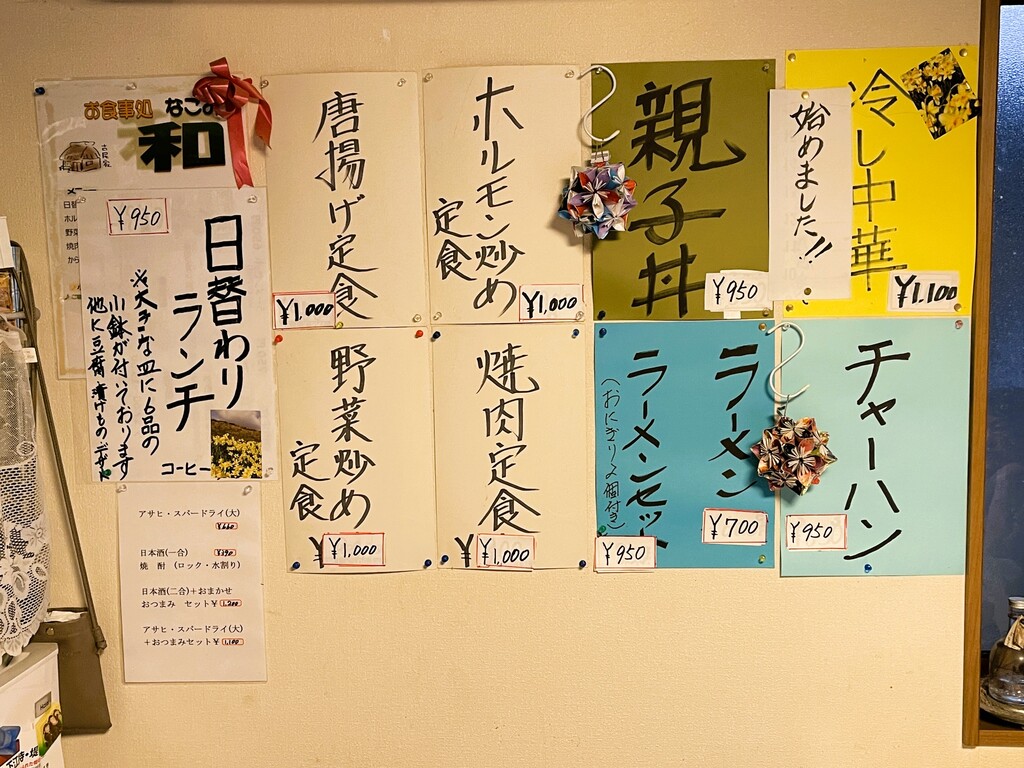 お食事処 なごみ
和
古民家
¥950
日替わり
ランチ
※大きな皿に6品の
小鉢が付いております
他に豆腐 漬けもの デザート
コーヒー
唐揚げ定食
¥1,000
ホルモン炒め
定食
¥1,000
親子丼
¥950
始めました!!
冷し中華
¥1,100
野菜炒め
定食
¥1,000
焼肉定食
¥1,000
ラーメン
¥700
ラーメンセット
(おにぎり2個付き)
¥950
チャーハン
¥950
アサヒ・スパードライ(大)
日本酒(一合)
焼 酎 (ロック・水割り)
日本酒(二合)+おまかせ
おつまみ セット¥1,200
アサヒ・スパードライ(大)
+おつまみセット¥1,100